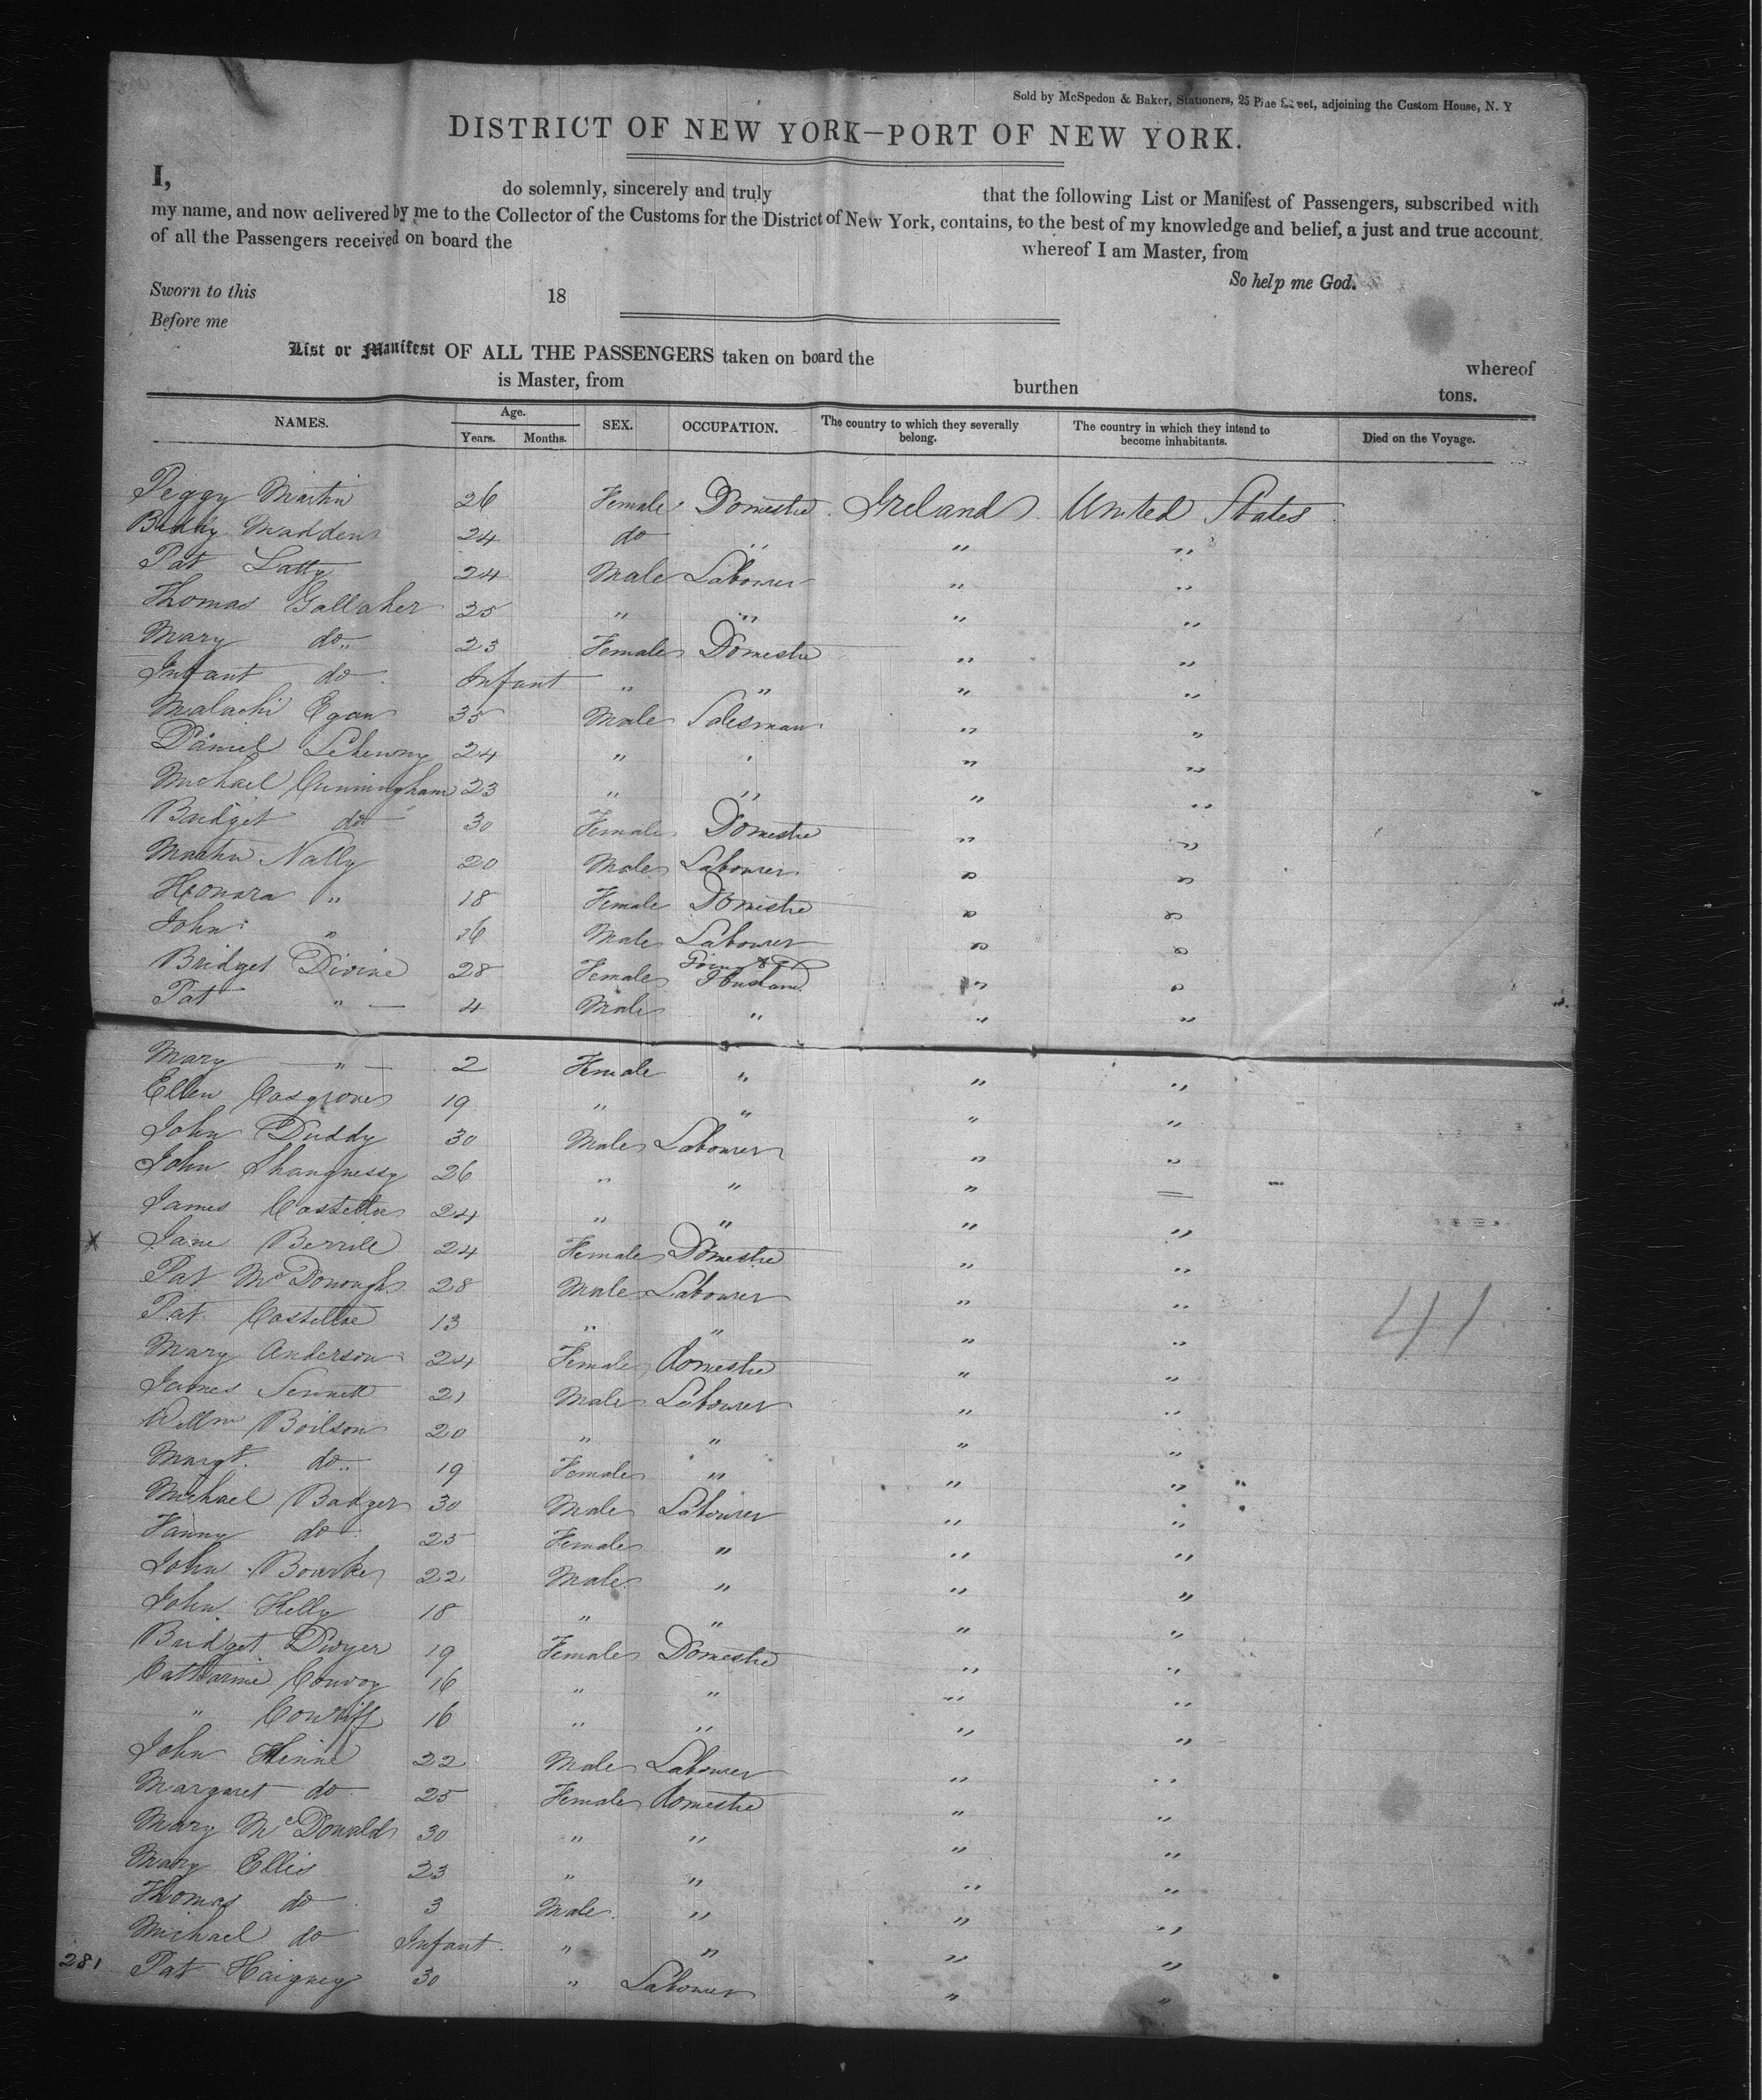 Sold by McSpedon & Baker, Stationers, 25 Pine Street, adjoining the Custom House, N. Y
DISTRICT OF NEW YORK—PORT OF NEW YORK.
I, do solemnly, sincerely and truly that the following List or Manifest of Passengers, subscribed with
my name, and now delivered by me to the Collector of the Customs for the District of New York, contains, to the best of my knowledge and belief, a just and true account
of all the Passengers received on board the whereof I am Master, from
So help me God.
Sworn to this 18
Before me
List or Manifest OF ALL THE PASSENGERS taken on board the whereof
is Master, from burthen tons.
NAMES. Age. Years. Months. SEX. OCCUPATION. The country to which they severally belong. The country in which they intend to become inhabitants. Died on the Voyage.
Peggy Martin 26 Female Domestic Ireland United States
Biddy Madden 24 do " " "
Pat Latty 24 Male Labourer " "
Thomas Gallaher 25 " " " "
Mary do 23 Female Domestic " "
Infant do Infant " " " "
Malachi Egan 35 Male Salesman " "
Daniel 24 " " " "
Michael Cunningham 23 " " " "
Bridget do 30 Female Domestic " "
Martin Nally 20 Male Labourer " "
Honora " 18 Female Domestic " "
John " 16 Male Labourer " "
Bridget Divine 28 Female Going to Husband " "
Pat " 4 Male " " "
Mary " 2 Female " " "
Ellen Cosgrove 19 " " " "
John Duddy 30 Male Labourer " "
John Shangnessy 26 " " " "
James Castelloe 24 " " " "
X Jane Berrill 24 Female Domestic " "
Pat McDonough 28 Male Labourer " "
Pat Castelloe 13 " " " "
41
Mary Anderson 24 Female domestic " "
James Sennett 21 Male Labourer " "
Willm Boilson 20 " " " "
Margt. do 19 Female " " "
Michael Badger 30 Male Labourer " "
Fanny do 25 Female " " "
John Bourke 22 Male " " "
John Kelly 18 " " " "
Bridget Dwyer 19 Female Domestic " "
Catharine Convoy 16 " " " "
" 16 " " " "
John 22 Male Labourer " "
Margaret do 25 Female domestic " "
Mary McDonald 30 " " " "
Mary Ellis 23 " " " "
Thomas do 3 Male " " "
Michael do Infant " " " "
281 Pat Haigney 30 " Labourer " "